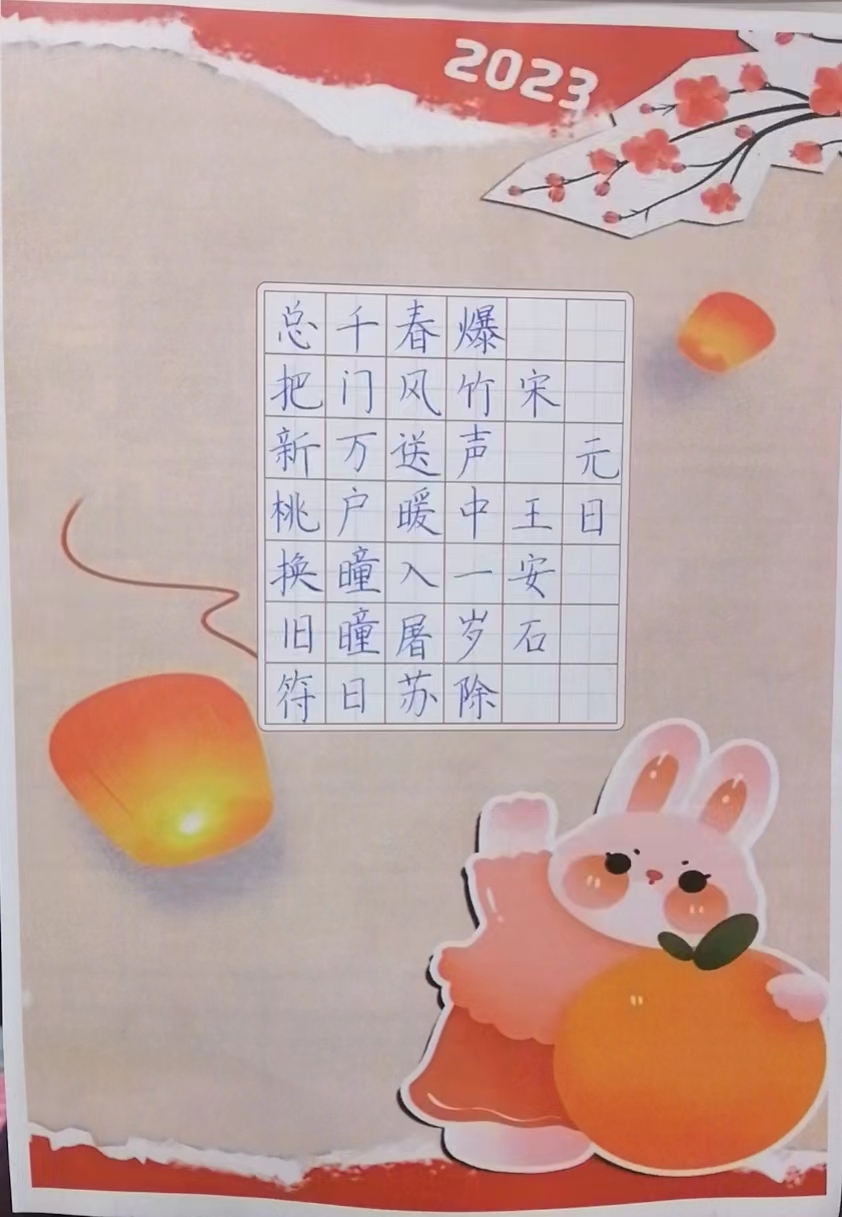 2023
元日
宋 王安石
爆竹声中一岁除
春风送暖入屠苏
千门万户瞳瞳日
总把新桃换旧符